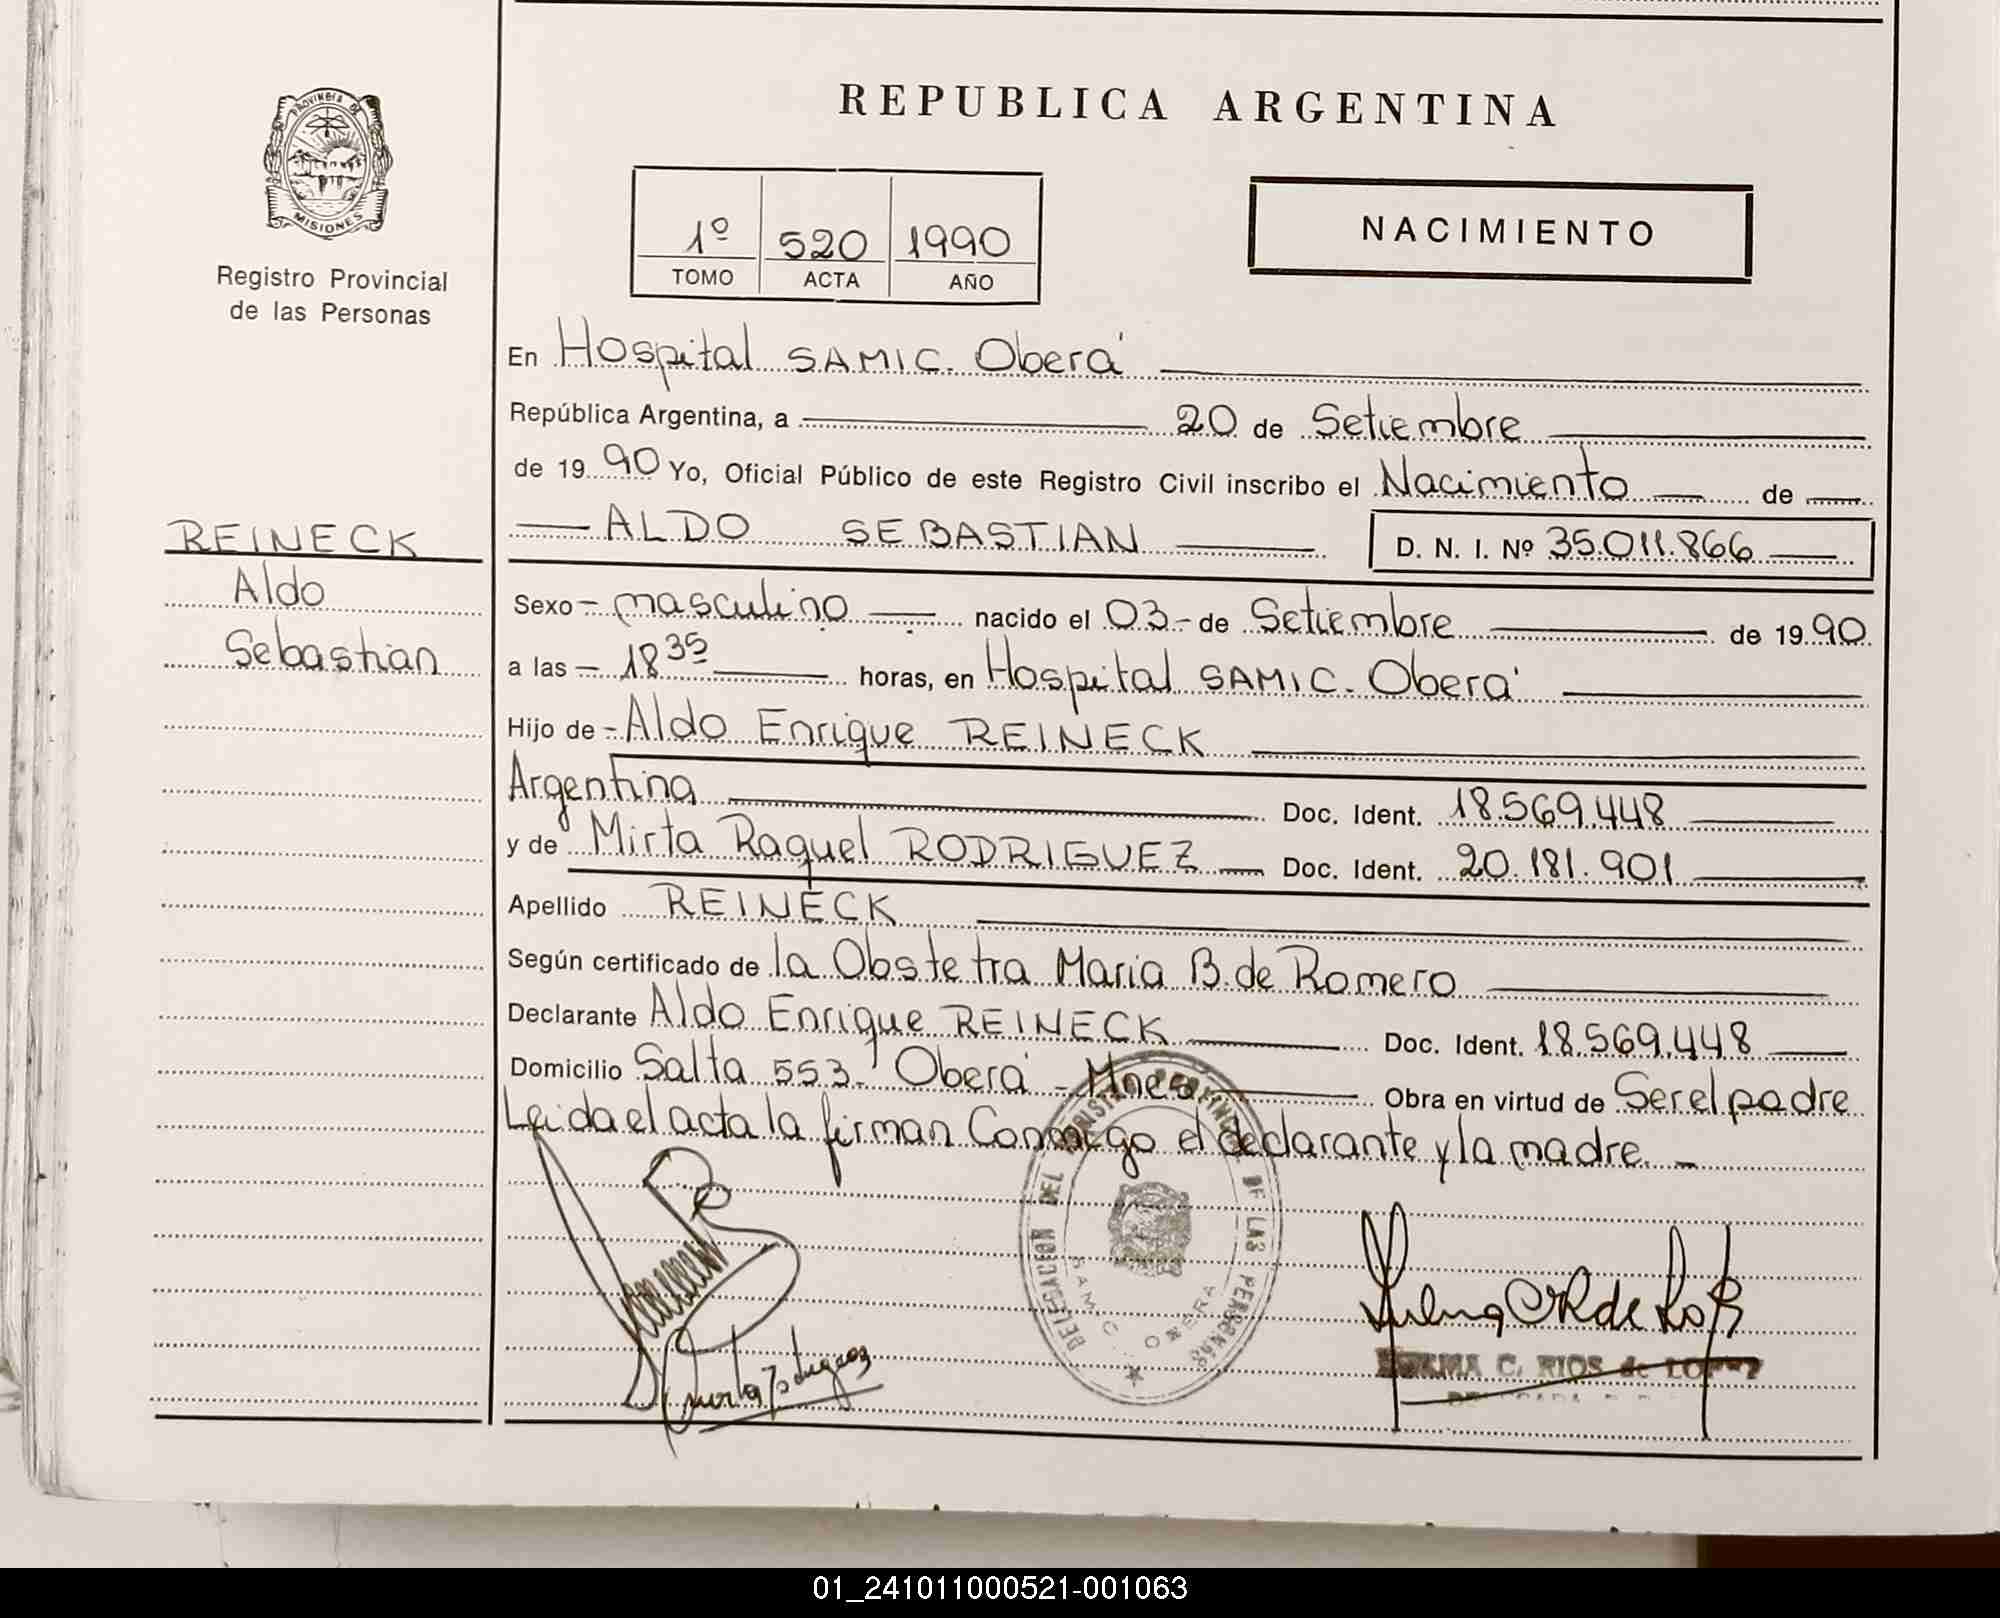 REPUBLICA ARGENTINA
PROVINCIA DE
MISIONES
Registro Provincial
de las Personas
1º 520 1990
TOMO ACTA AÑO
NACIMIENTO
En Hospital SAMIC. Oberá
República Argentina, a 20 de Setiembre
de 19 90 Yo, Oficial Público de este Registro Civil inscribo el Nacimiento de
ALDO SEBASTIAN D. N. I. Nº 35.011.866
REINECK
Aldo
Sebastian
Sexo - masculino nacido el 03 - de Setiembre de 19 90
a las - 18 35 horas, en Hospital SAMIC. Oberá
Hijo de - Aldo Enrique REINECK
Argentina Doc. Ident. 18.569.448
y de Mirta Raquel RODRIGUEZ Doc. Ident. 20.181.901
Apellido REINECK
Según certificado de la Obstetra Maria B. de Romero
Declarante Aldo Enrique REINECK Doc. Ident. 18.569.448
Domicilio Salta 553. Oberá - Mnes Obra en virtud de Ser el padre
Leida el acta la firman Conmigo el declarante y la madre. -
DELEGACION DEL REGISTRO PROVINCIAL DE LAS PERSONAS
SAMIC OBERA
NORMA C. RIOS de LOPEZ
01_241011000521-001063